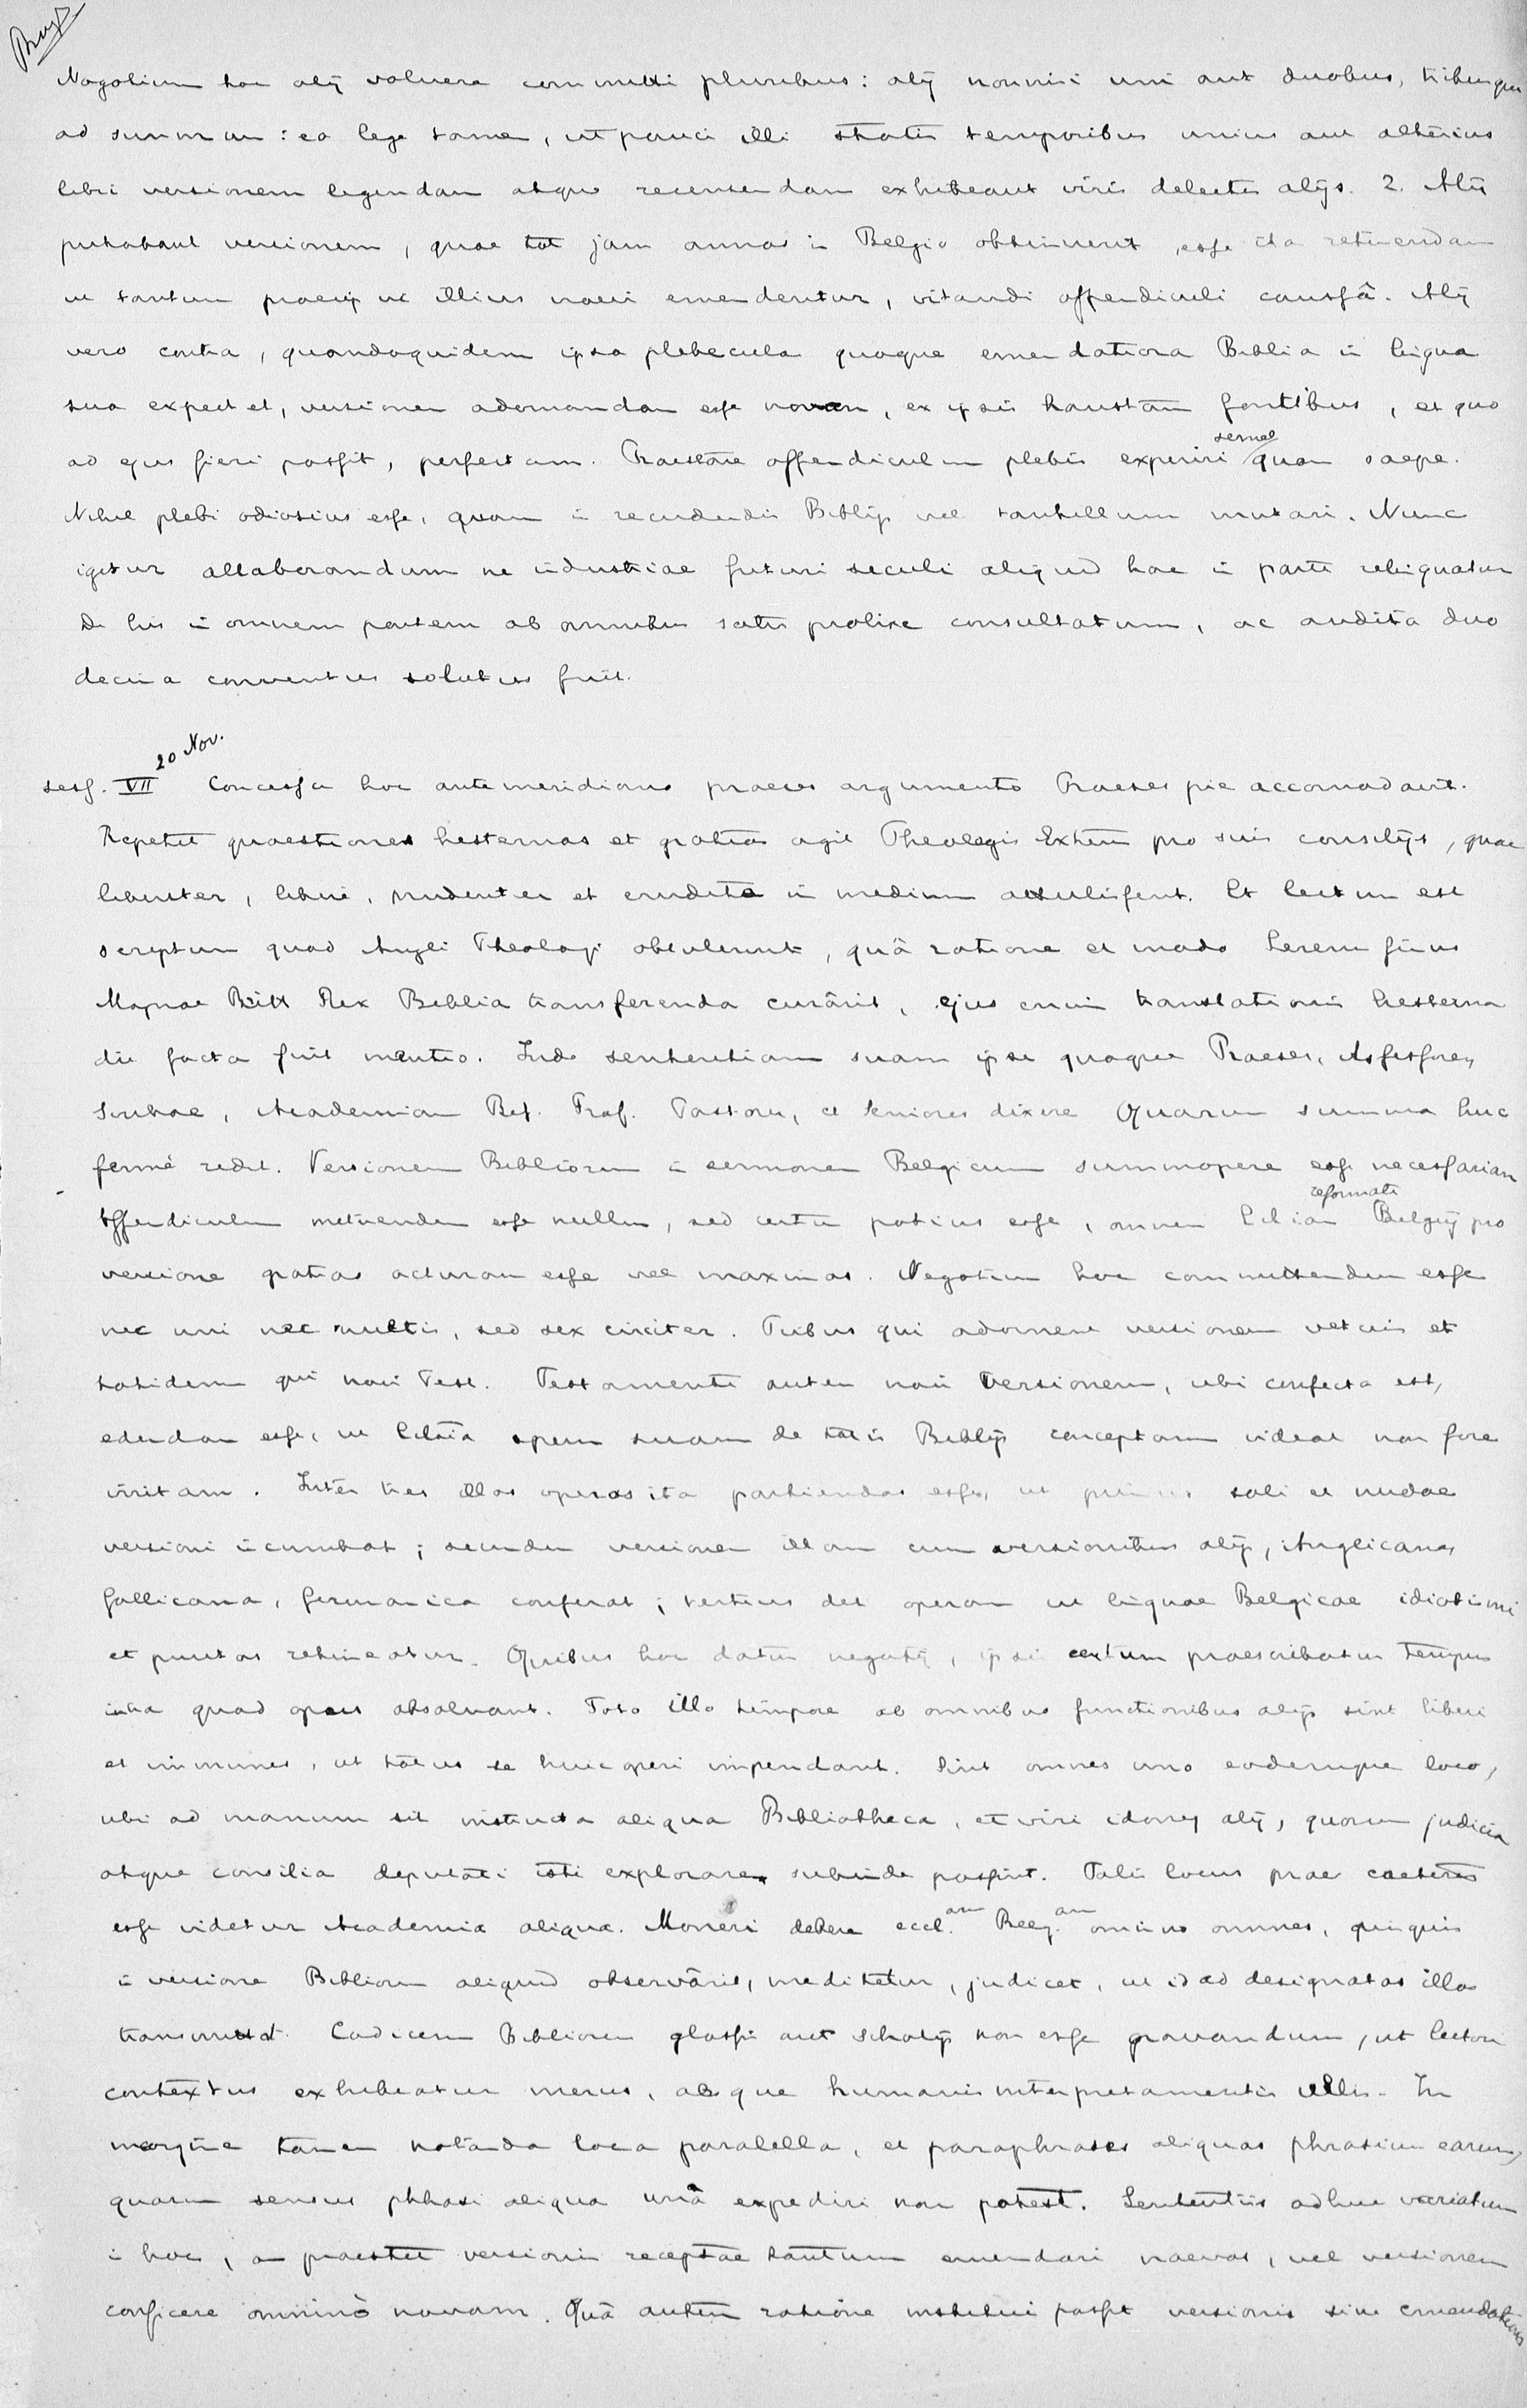 Negotium hoc alij voluere committi pluribus: alij nonnisi uni aut duobus, tribusque
ad summum: ea lege tamen, ut pauci illi statis temporibus unius aut alterius
libri versionem legendam atque recensendam exhibeant viris delectis alijs. 2. Alij
putabant versionem, quae tot jam annos in Belgio obtinuerit, esse ita retinendam
ut tantum praecipue illius naevi emendentur, vitandi offendiculi caussâ. Alij
vero contra, quandoquidem ipsa plebecula quoque emendatiora Biblia in lingua
sua expectet, versionem adornandam esse novam, ex ipsis haustam fontibus, et quo
ad ejus fieri possit, perfectam. Praestare offendiculum plebis experiri semel quam saepe.
Nihil plebi odiosius esse, quam in recudendis Biblijs vel tantillum mutari. Nunc
igitur allaborandum ne industriae futuri seculi aliquid hac in parte relinquatur
De his in omnem partem ab omnibus satis prolixe consultatum, ac audita duo
decima conventus solutus fuit.
sess. VII 20 Nov. Concessu hoc antemeridiano preces argumento Praeses pie accomodavit.
Repetit quaestiones hesternas et gratias agit Theologis Exteris pro suis consilijs, quae
libenter, libere, prudenter et erudite in medium attulissent. Et lectum est
scriptum quod Angli Theologi obtulerunt, quâ ratione et modo Serenissimus
Magnae Britt Rex Biblia transferenda curârit, ejus enim translationis hesterna
die facta fuit mentio. Inde sententiam suam ipse quoque Praeses, Assessores,
Scribae, Academiarum Belg. Prof. Pastores, et Seniores dixere Quarum summa huc
fermè redit. Versionem Bibliorum in sermonem Belgicum summopere esse necessariam
Offendiculum metuendum esse nullum, sed certum potius esse, omnem Eccl.iam reformati Belgij pro
versione gratias acturam esse vel maximas. Negotium hoc committendum esse
nec uni nec multis, sed sex circiter. Tribus qui adornent versionem veteris et
totidem qui novi Test. Testamenti autem novi versionem, ubi confecta est,
edendam esse, ut Ecclesia spem suam de totis Biblijs conceptam videat non fore
irritam. Inter tres illos operas ita partiendas esse, ut primus soli et nudae
versioni incumbat; secundus versionem illam cum versionibus alijs, Anglicana,
Gallicana, Germanica conferat; tertius det operam ut linguae Belgicae idiotismi
et puritas retineatur. Quibus hoc datur negotij, ipsis certum praescribatur tempus
intra quod opus absolvant. Toto illo tempore ab omnibus functionibus alijs sint liberi
et immunes, ut totos se huic operi impendant. Sint omnes uno eodemque loco,
ubi ad manum sit instructa aliqua Bibliotheca, et viri idonei alij, quorum judicia
atque consilia deputati isti explorare subinde possint. Talis locus prae caeteris
esse videtur Academia aliqua. Moneri debere eccl.arum Belg.arum omnino omnes, quisquis
in versione Bibliorum aliquid observârit, meditetur, judicet, ut id ad designatos illos
transmittat. Codicem Bibliorum glossis aut scholijs non esse gravandum, ut lectori
contextus exhibeatur merus, absque humanis interpretamentis ullis. In
margine tamen notanda loca paralella, et paraphrases aliquas phrasium earum,
quarum sensus phhasi aliqua unâ expediri non potest. Sententiis adhuc variatum
in hoc, an praestet versionis receptae tantum emendari naevos, vel versionem
conficere omninò novam. Quâ autem ratione institui possit versionis sive emendationis